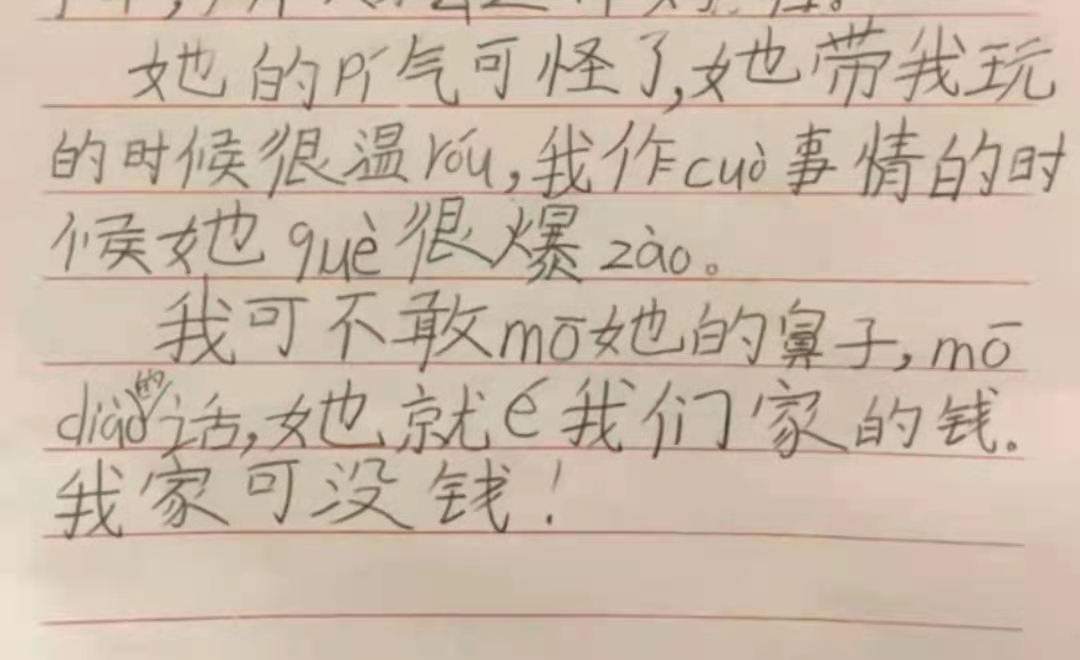 她的pí气可怪了,她带我玩
的时候很温róu,我作cuò事情的时
候她què很爆zào。
我可不敢mō她的鼻子,mō
diào的话,她就é我们家的钱。
我家可没钱!